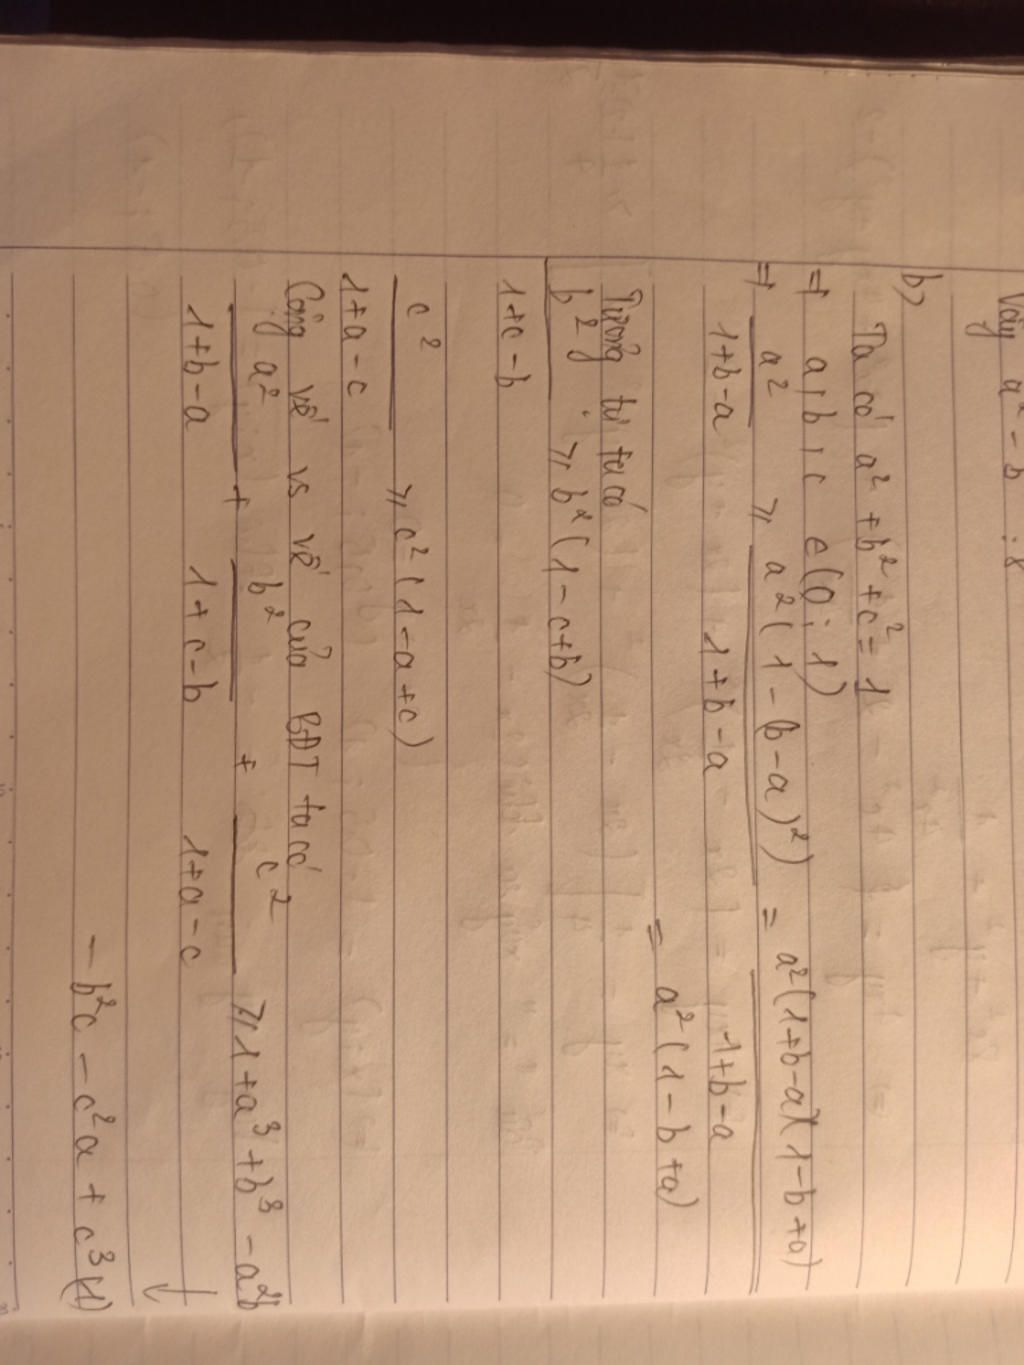 Vậy a² - b ⋮ 8
b)
Ta có a² + b² + c² = 1
⇒ a, b, c e (0; 1)
⇒ a²/(1+b-a) ⩾ a²(1-(b-a)²)/(1+b-a) = a²(1+b-a)(1-b+a)/(1+b-a)
= a²(1-b+a)
Tương tự ta có
b²/(1+c-b) ⩾ b²(1-c+b)
c²/(1+a-c) ⩾ c²(1-a+c)
Cộng vế vs vế của BĐT ta có
a²/(1+b-a) + b²/(1+c-b) + c²/(1+a-c) ⩾ 1+a³+b³-a²b
-b²c-c²a+c³(1)